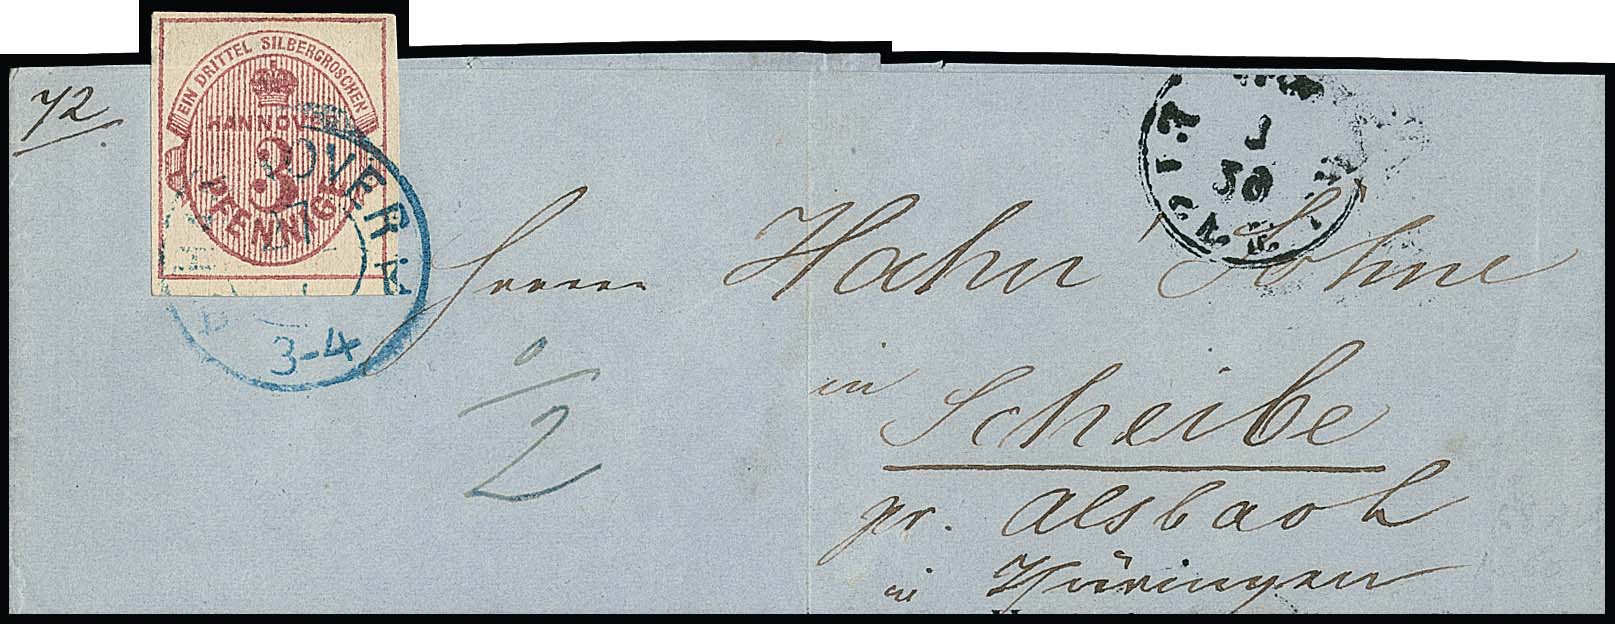 72
EIN DRITTEL SILBERGROSCHEN
HANNOVER
3
PFENNIGE
OVER
27
3-4
Herrn Hahn Söhne
0/2
in
Scheibe
pr. Alsbach
in Thüringen